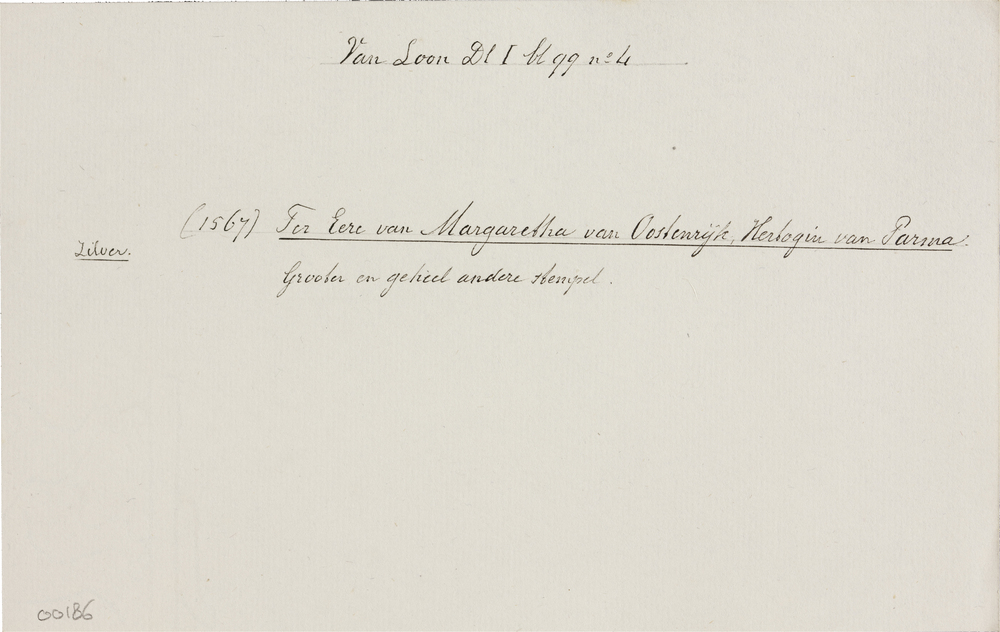 Van Loon Dl I bl 99 no 4
(1567) Ter Eere van Margaretha van Oostenrijk, Hertogin van Parma.
Zilver.
Grooter en geheel andere stempel.
00186